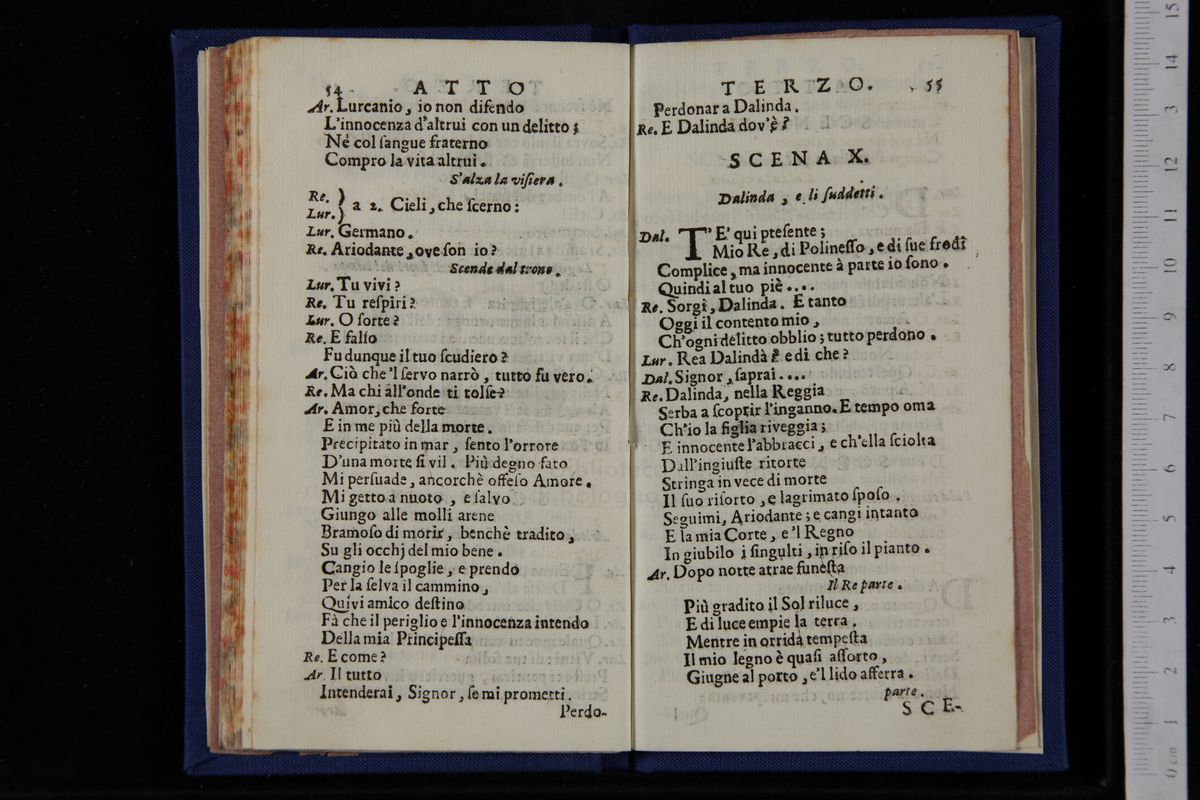 54 ATTO
Ar. Lurcanio, io non difendo
L'innocenza d'altrui con un delitto;
Nè col ſangue fraterno
Compro la vita altrui.
S'alza la viſiera.
Re. } a 2. Cieli, che ſcerno:
Lur. }
Lur. Germano.
Re. Ariodante, ove ſon io?
Scende dal trono.
Lur. Tu vivi?
Re. Tu reſpiri?
Lur. O ſorte?
Re. E falſo
Fu dunque il tuo ſcudiero?
Ar. Ciò che 'l ſervo narrò, tutto fu vero.
Re. Ma chi all'onde ti tolſe?
Ar. Amor, che forte
E in me più della morte.
Precipitato in mar, ſento l'orrore
D'una morte ſi vil. Più degno fato
Mi perſuade, ancorchè offeſo Amore.
Mi getto a nuoto, e ſalvo
Giungo alle molli arene
Bramoſo di morir, benchè tradito,
Su gli occhj del mio bene.
Cangio le ſpoglie, e prendo
Per la ſelva il cammino,
Quivi amico deſtino
Fà che il periglio e l'innocenza intendo
Della mia Principeſſa
Re. E come?
Ar. Il tutto
Intenderai, Signor, ſe mi prometti.
Perdo-
TERZO. 55
Perdonar a Dalinda.
Re. E Dalinda dov'è?
SCENA X.
Dalinda, e li ſuddetti.
Dal. T'E' qui preſente;
Mio Re, di Polineſſo, e di ſue frodi
Complice, ma innocente à parte io ſono.
Quindi al tuo piè....
Re. Sorgi, Dalinda. E tanto
Oggi il contento mio,
Ch'ogni delitto obblio; tutto perdono.
Lur. Rea Dalinda? e di che?
Dal. Signor, ſaprai....
Re. Dalinda, nella Reggia
Serba a ſcoprir l'inganno. E tempo oma
Ch'io la figlia riveggia;
E innocente l'abbracci, e ch'ella ſciolta
Dall'ingiuſte ritorte
Stringa in vece di morte
Il ſuo riſorto, e lagrimato ſpoſo.
Seguimi, Ariodante; e cangi intanto
E la mia Corte, e 'l Regno
In giubilo i ſingulti, in riſo il pianto.
Ar. Dopo notte atra e funeſta
Il Re parte.
Più gradito il Sol riluce,
E di luce empie la terra.
Mentre in orrida tempeſta
Il mio legno è quaſi aſſorto,
Giugne al porto, e'l lido afferra.
parte.
SCE-
0 cm 1 2 3 4 5 6 7 8 9 10 11 12 13 14 15